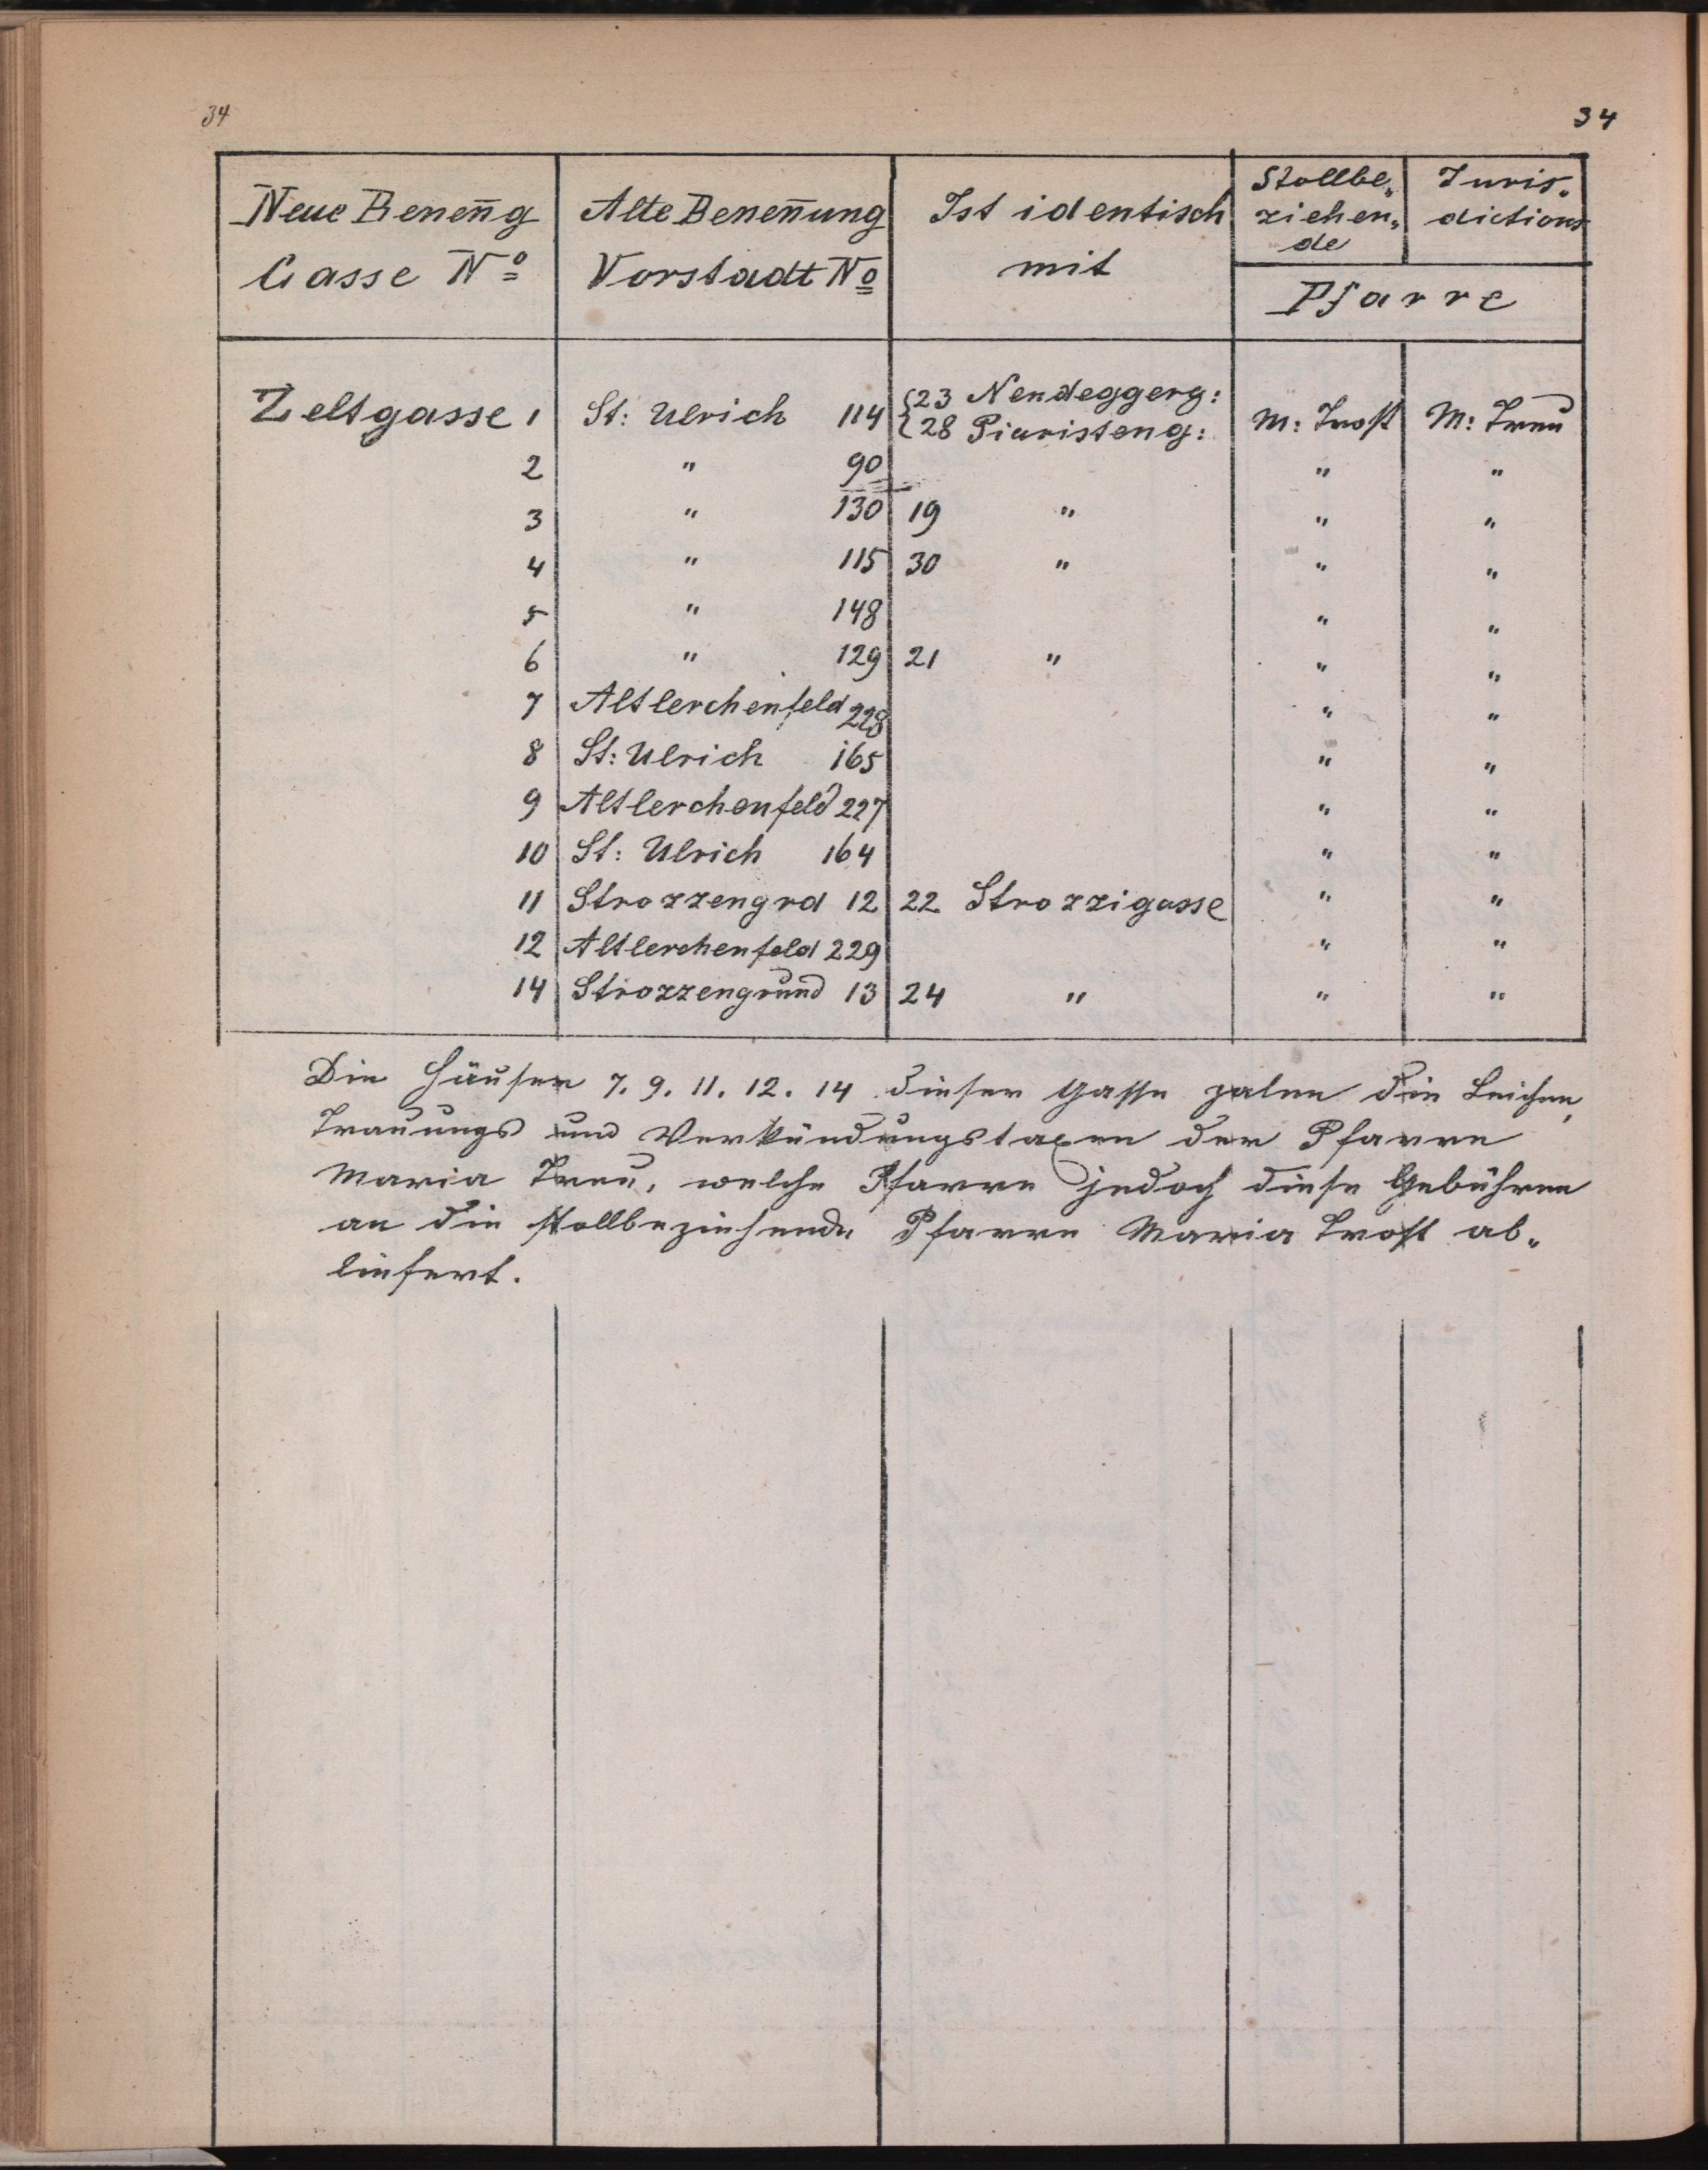 34 34
Neue Beneñg Alte Beneñung Ist identisch Stollbe„ Juris„
Gasse Nº Vorstadt Nº mit ziehen„ dictions
de
Pfarre
Zeltgasse 1 St: Ulrich 114 {23 Nendeggerg: M: Trost M: Treu
{28 Piaristeng:
2 " 90 " "
3 " 130 19 " " "
4 " 115 30 " " "
5 " 148 " "
6 " 129 21 " " "
7 Altlerchenfeld 228 " "
8 St: Ulrich 165 " "
9 Altlerchenfeld 227 " "
10 St: Ulrich 164 " "
11 Strozzengrd 12 22 Strozzigasse " "
12 Altlerchenfeld 229 " "
14 Strozzengrund 13 24 " " "
Die Häuser 7. 9. 11. 12. 14 dieser Gasse zalen die Leichen,
Trauungs und Verkündungstaxen der Pfarre
Maria Treu, welche Pfarre jedoch diese Gebühren
an die stollbeziehende Pfarre Maria Trost ab„
liefert.